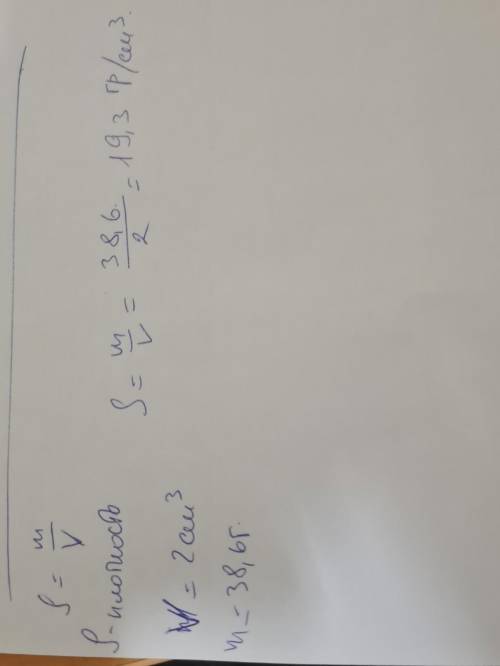 ρ = m/V
ρ - плотность
V = 2 см³
m = 38,6 г.
ρ = m/V = 38,6/2 = 19,3 гр/см³.